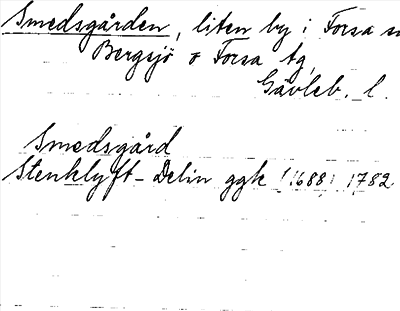 Smedsgården, liten by i Forsa sn
Bergsjö o Forsa tg
Gävleb. l.
Smedsgård
Stenklyft - Delin ggk (1688) 1782